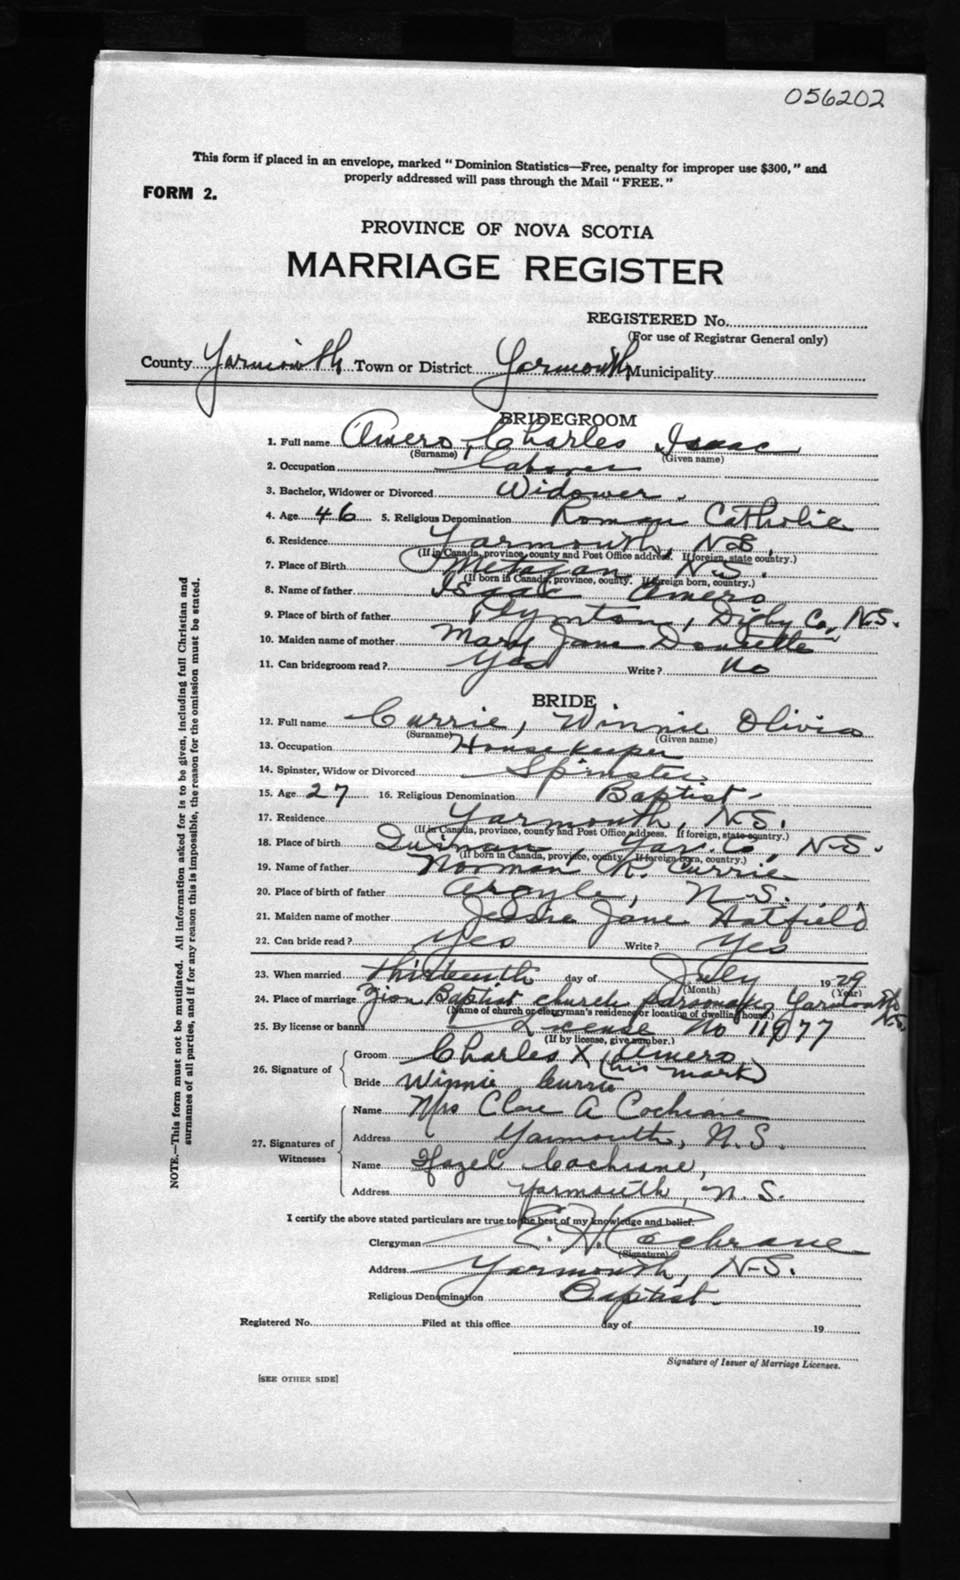 056202
This form if placed in an envelope, marked "Dominion Statistics—Free, penalty for improper use $300," and
properly addressed will pass through the Mail "FREE."
FORM 2.
PROVINCE OF NOVA SCOTIA
MARRIAGE REGISTER
REGISTERED No.
(For use of Registrar General only)
County Yarmouth Town or District Yarmouth Municipality
BRIDEGROOM
1. Full name Amero, Charles Isaac
(Surname) (Given name)
2. Occupation Laborer
3. Bachelor, Widower or Divorced Widower.
4. Age 46 5. Religious Denomination Roman Catholic
6. Residence Yarmouth, N.S.
(If in Canada, province, county and Post Office address. If foreign, state country.)
7. Place of Birth Metagan N.S.
(If born in Canada, province, county. If foreign born, country.)
8. Name of father Isaac Amero
9. Place of birth of father Plynton, Digby Co, N.S.
10. Maiden name of mother Mary Jane Doucette
11. Can bridegroom read? Yes Write? No
BRIDE
12. Full name Currie, Winnie Olivia
(Surname) (Given name)
13. Occupation Housekeeper
14. Spinster, Widow or Divorced Spinster
15. Age 27 16. Religious Denomination Baptist
17. Residence Yarmouth, N.S.
(If in Canada, province, county and Post Office address. If foreign, state country.)
18. Place of birth Yar. Co, N.S.
(If born in Canada, province, county. If foreign born, country.)
19. Name of father Norman K. Currie
20. Place of birth of father Argyle, N.S.
21. Maiden name of mother Jessie Jane Hatfield
22. Can bride read? Yes Write? Yes
23. When married thirteenth day of July 1929
(Month) (Year)
24. Place of marriage Zion Baptist church parsonage, Yarmouth N.S.
(Name of church or clergyman's residence or location of dwelling house.)
25. By license or banns License No
(If by license, give number.)
26. Signature of
Groom Charles X Amero
(his mark)
Bride Winnie Currie
27. Signatures of Witnesses
Name Mrs Clare A Cochrane
Address Yarmouth, N.S.
Name Hazel Cochrane,
Address Yarmouth, N.S.
I certify the above stated particulars are true to the best of my knowledge and belief.
Clergyman E. H. Cochrane
(Signature)
Address Yarmouth, N.S.
Religious Denomination Baptist.
Registered No. Filed at this office day of 19
Signature of Issuer of Marriage Licenses.
[SEE OTHER SIDE]
NOTE.—This form must not be mutilated. All information asked for is to be given, including full Christian and
surnames of all parties, and if for any reason this is impossible, the reason for the omission must be stated.